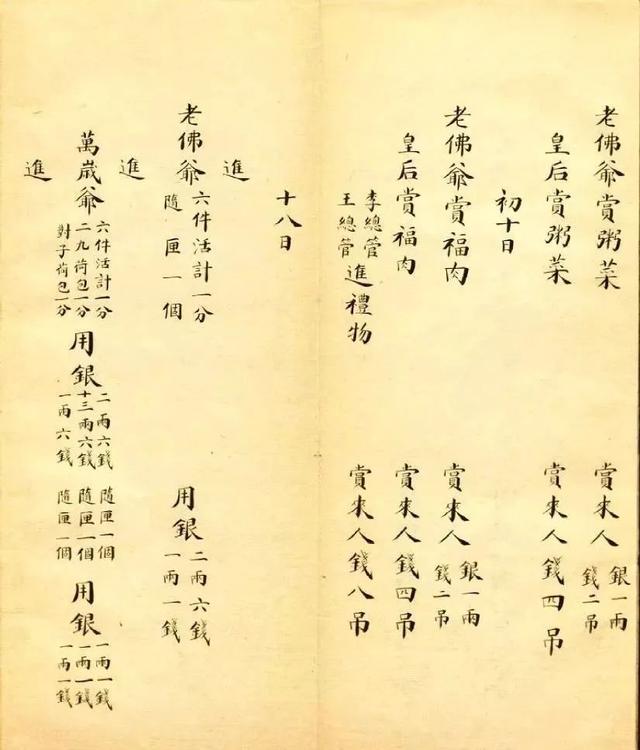 老佛爺賞粥菜 賞來人 銀一兩 錢二吊
皇后賞粥菜 賞來人錢四吊
初十日
老佛爺賞福肉 賞來人 銀一兩 錢二吊
皇后賞福肉 賞來人錢四吊
李總管 王總管 進禮物 賞來人錢八吊
十八日
進
老佛爺 六件活計一分 隨匣一個 用銀 二兩六錢 一兩一錢
進
萬歲爺 六件活計一分 二九荷包一分 對子荷包一分 用銀 二兩六錢 十三兩六錢 一兩六錢 隨匣一個 隨匣一個 隨匣一個 用銀 一兩一錢 一兩一錢 一兩一錢
進